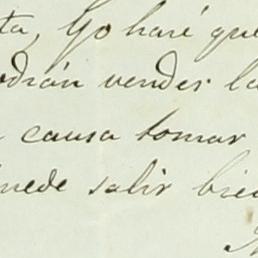 ta, Yo haré que
odrán vender la
causa tomar
uede salir bien